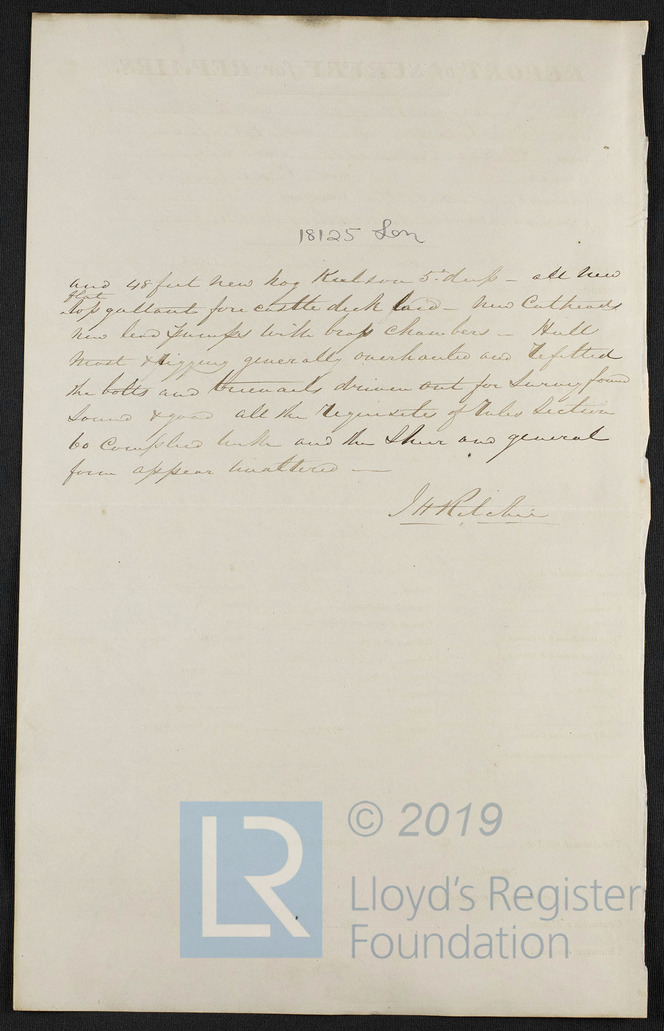 18125 Lon
and 48 feet new hog Keelson 5" deep - all new
flat
top gallant fore castle deck laid - new Catheads
new lead pumps with brass Chambers - Hull
Mast & rigging generally overhauled and refitted
the bolts and treenails driven out for Survey found
Sound & good all the requisites of rules Section
60 Complied with and the Sheer and general
form appear unaltered -
J H Ritchie
LR
© 2019
Lloyd's Register
Foundation